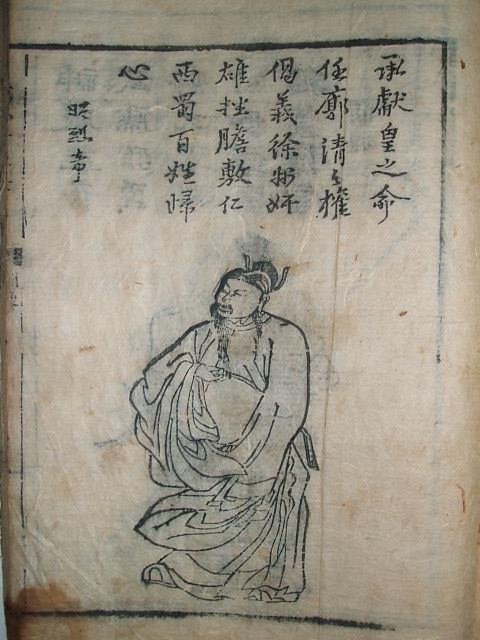 承獻皇之命
任廓清之權
倡義徐州奸
雄挫膽敷仁
西蜀百姓歸
心
昭烈帝